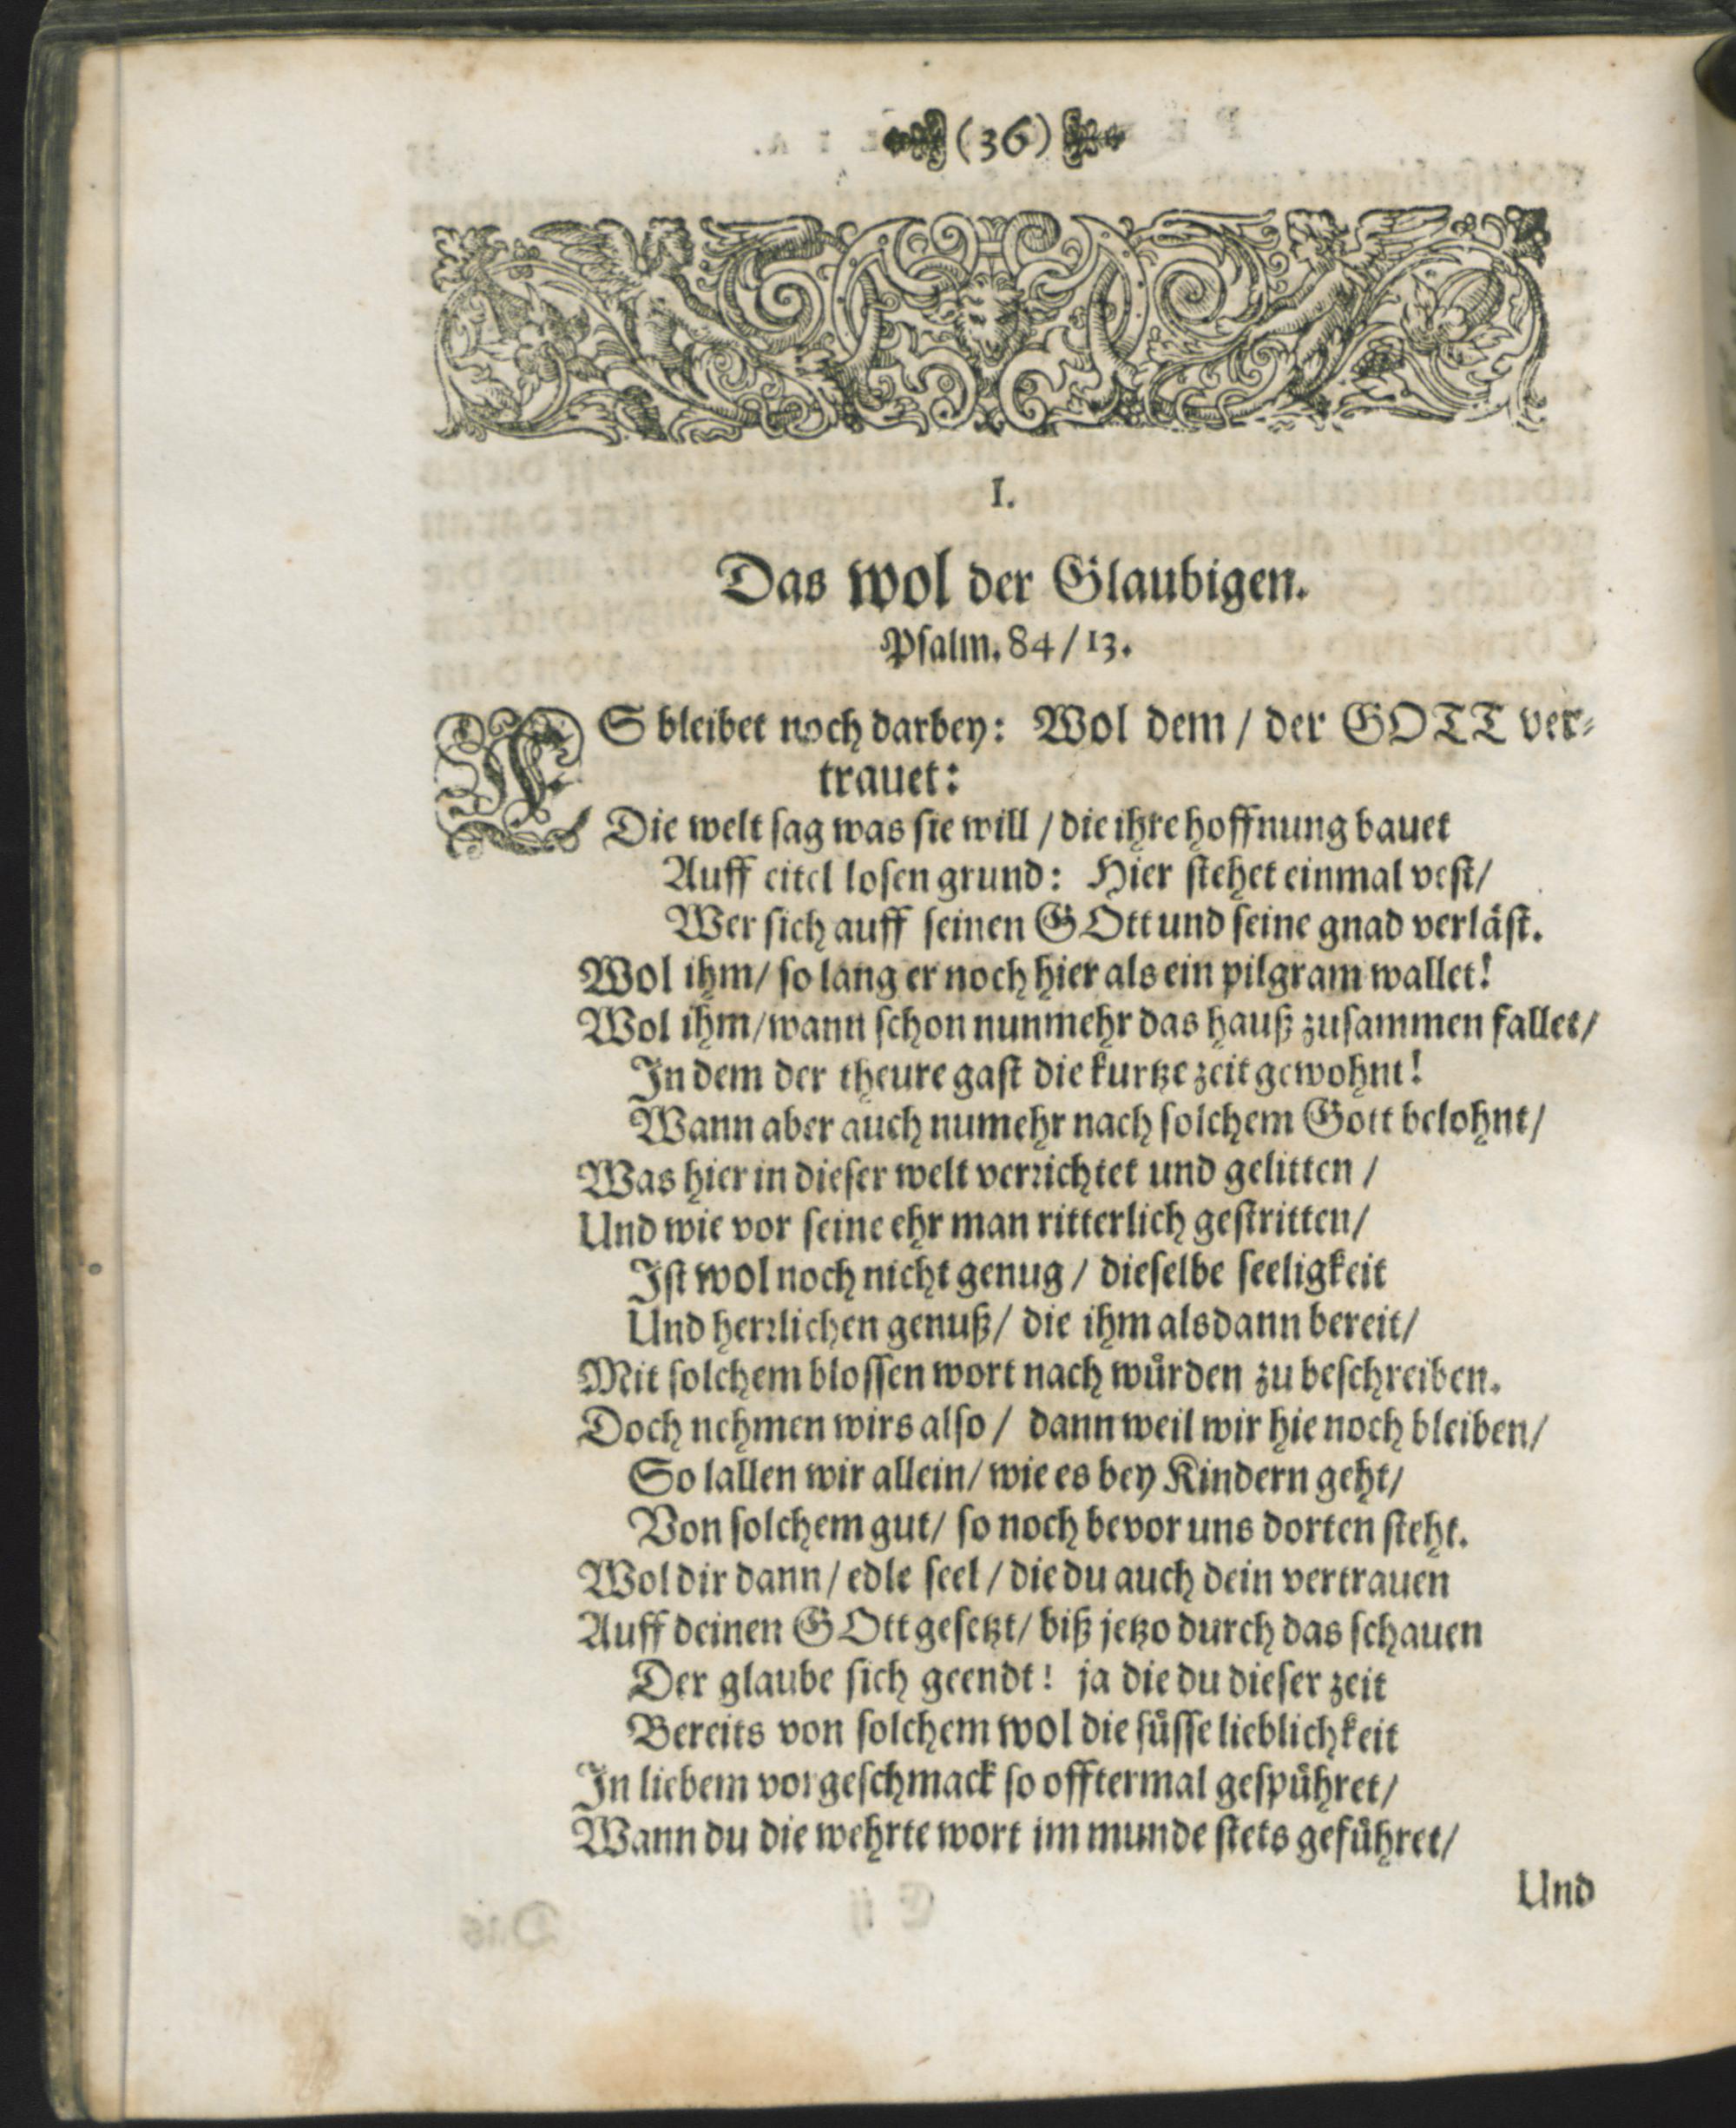 (36)
I.
Das wol der Glaubigen.
Psalm. 84/13.
ES bleibet noch darbey: Wol dem / der GOTT ver-
trauet:
Die welt sag was sie will / die ihre hoffnung bauet
Auff eitel losen grund: Hier stehet einmal vest/
Wer sich auff seinen GOtt und seine gnad verläst.
Wol ihm/ so lang er noch hier als ein pilgram wallet!
Wol ihm/wann schon nunmehr das hauß zusammen fallet/
In dem der theure gast die kurtze zeit gewohnt!
Wann aber auch numehr nach solchem Gott belohnt/
Was hier in dieser welt verrichtet und gelitten /
Und wie vor seine ehr man ritterlich gestritten/
Ist wol noch nicht genug / dieselbe seeligkeit
Und herrlichen genuß/ die ihm alsdann bereit/
Mit solchem blossen wort nach wuͤrden zu beschreiben.
Doch nehmen wirs also / dann weil wir hie noch bleiben/
So lallen wir allein/ wie es bey Kindern geht/
Von solchem gut/ so noch bevor uns dorten steht.
Wol dir dann/ edle seel / die du auch dein vertrauen
Auff deinen GOtt gesetzt/ biß jetzo durch das schauen
Der glaube sich geendt! ja die du dieser zeit
Bereits von solchem wol die suͤsse lieblichkeit
In liebem vorgeschmack so offtermal gespuͤhret/
Wann du die wehrte wort im munde stets gefuͤhret/
Und